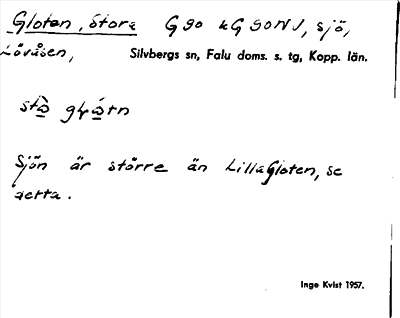 Gloten, Stora G 90 kG 90NV, sjö,
Lövåsen, Silvbergs sn, Falu doms. s. tg, Kopp. län.
Sjön är större än Lilla Gloten, se
detta.
Inge Kvist 1957.